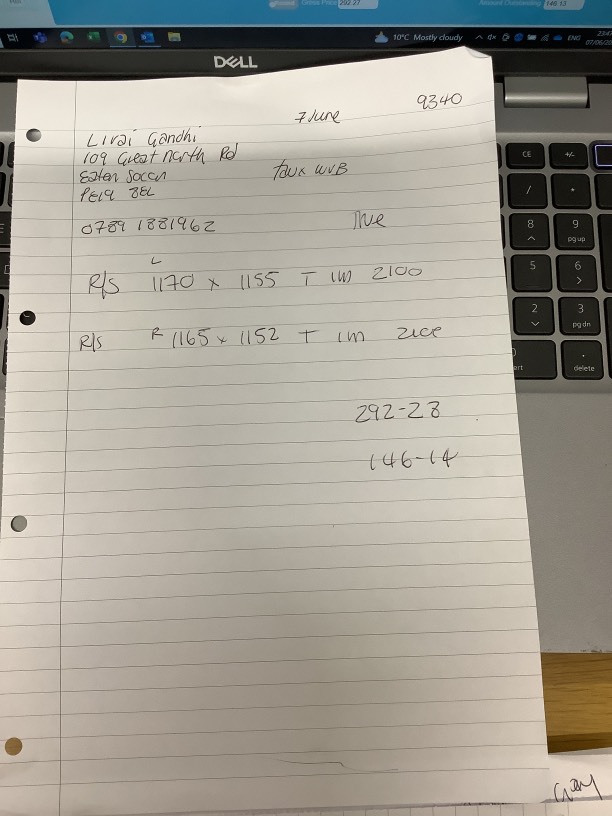 292.27
146.13
10°C Mostly cloudy
ENG
23:4
07/06/20
DELL
7 June
9340
Liraj Gandhi
109 Great North Rd
Eaton Socon
PE19 8EL
faux WVB
07891881962
L
R/S 1170 x 1155 T 1m 2100
R/S R 1165 x 1152 T 1m
292-28
146-14
CE
+/-
/
*
8
9
pg up
5
6
2
3
pg dn
.
delete